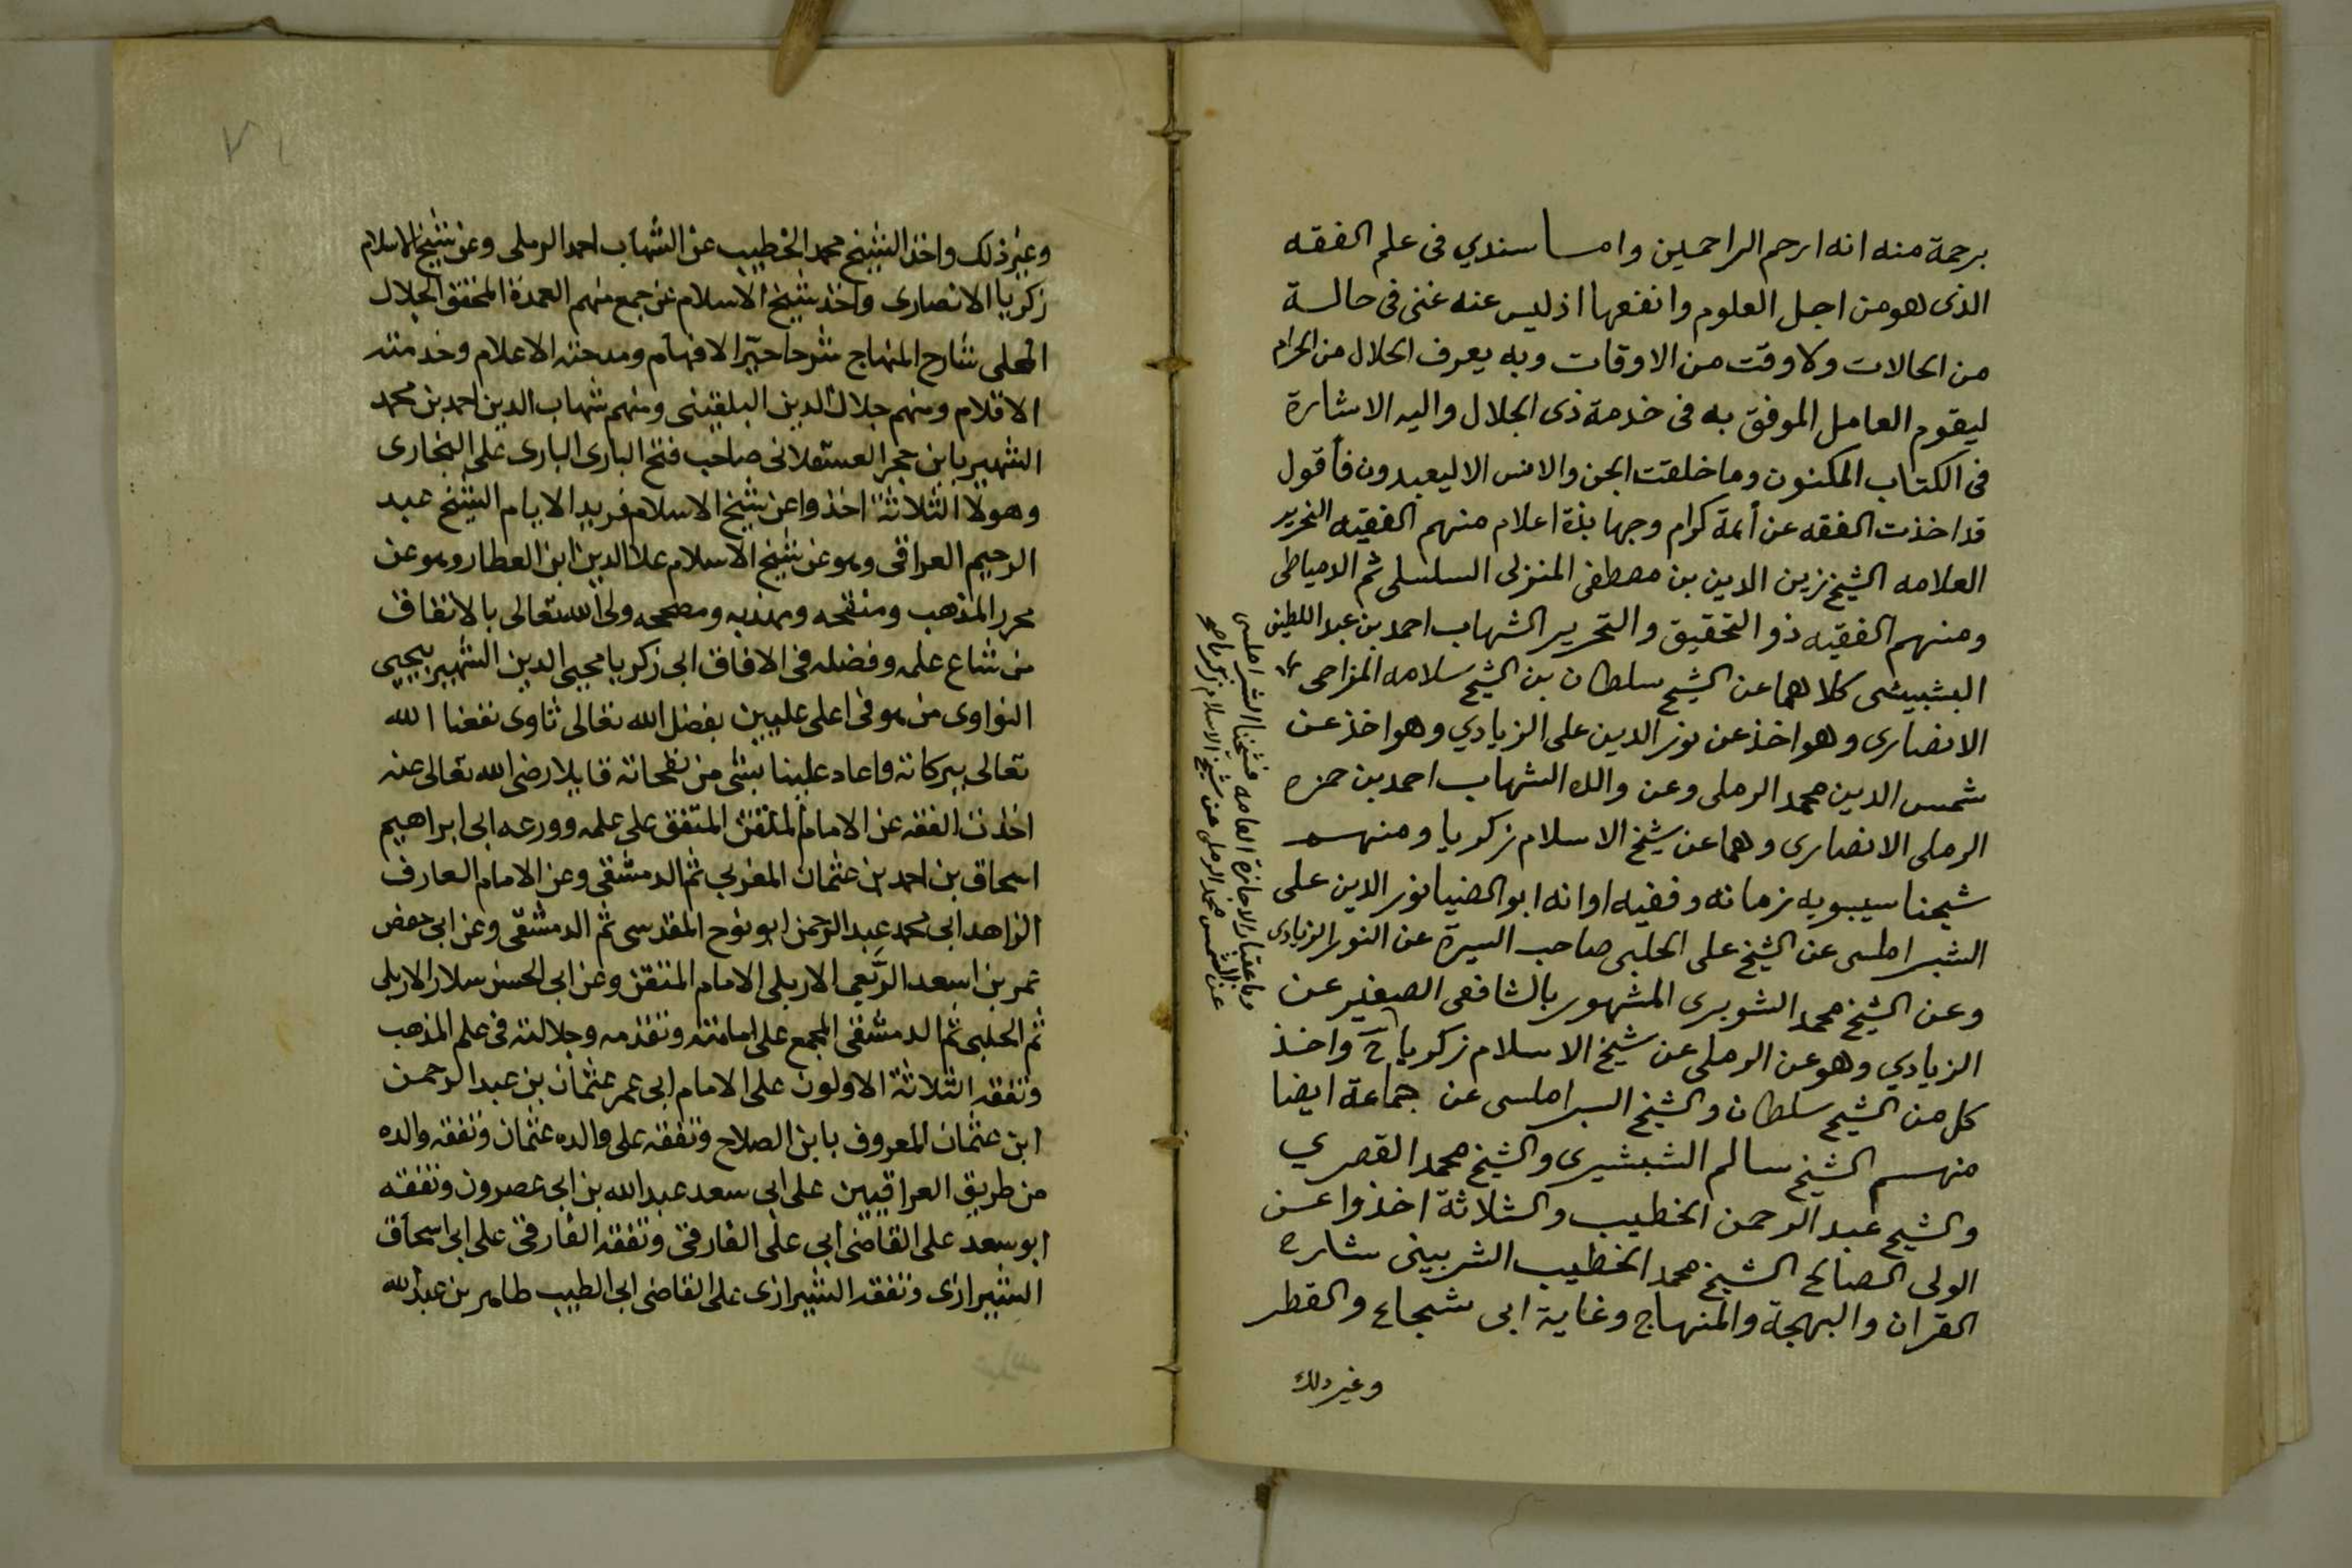 برحمة منه انه ارحم الراحمين واما سندي فى علم الفقه
الذى هو من اجل العلوم وانفعها اذ ليس عنه غنى فى حالة
من الحالات ولا وقت من الاوقات وبه يعرف الحلال من الحرام
ليقوم العامل الموفق به فى خدمة ذى الجلال واليه الاشارة
فى الكتاب المكنون وما خلقت الجن والانس الا ليعبدون فأقول
قد اخذت الفقه عن أئمة كرام وجهابذة اعلام منهم الفقيه النحرير
العلامه الشيخ زين الدين بن مصطفى المنزلى السلسلى ثم الدمياطى
ومنهم الفقيه ذو التحقيق والتحرير الشهاب احمد بن عبد اللطيف
البشبيشى كلاهما عن الشيخ سلطان بن الشيخ سلامه المزاحى
الانصارى وهو اخذ عن نور الدين على الزيادي وهو اخذ عن
شمس الدين محمد الرملى وعن والده الشهاب احمد بن حمزه
الرملى الانصارى وهما عن شيخ الاسلام زكريا ومنهم
شيخنا سيبويه زمانه وفقيه اوانه ابو الضيا نور الدين على
الشبراملسى عن الشيخ على الحلبى صاحب السيرة عن النور الزيادى
وعن الشيخ محمد الشوبرى المشهور بالشافعى الصغير عن
الزيادي وهو عن الرملى عن شيخ الاسلام زكريا ح واخذ
كل من الشيخ سلطان والشيخ الشبراملسى عن جماعة ايضا
منهم الشيخ سالم الشبشيرى والشيخ محمد القصري
والشيخ عبد الرحمن الخطيب والثلاثة اخذوا عن
الولى الصالح الشيخ محمد الخطيب الشربينى شارح
القران والبهجة والمنهاج وغاية ابى شجاع والقطر
وغير ذلك
وباعتبار الاجازة العامه فشيخنا الشبراملسى
عن الشمس محمد الرملى عن شيخ الاسلام زكريا صح
وغير ذلك واخذ الشيخ محمد الخطيب عن الشهاب احمد الرملى وعن شيخ الاسلام
زكريا الانصارى واخذ شيخ الاسلام عن جمع منهم العمدة المحقق الجلال
المحلى شارح المنهاج شرحا حيّر الافهام ومدحته الاعلام وخدمته
الاقلام ومنهم جلال الدين البلقينى ومنهم شهاب الدين احمد بن محمد
الشهير بابن حجر العسقلانى صاحب فتح البارى البارى على البخارى
وهولا الثلاثة اخذوا عن شيخ الاسلام فريد الايام الشيخ عبد
الرحيم العراقى وهو عن شيخ الاسلام علا الدين ابن العطار وهو عن
محرر المذهب ومنقحه ومهذبه ومصححه ولى الله تعالى بالاتفاق
من شاع علمه وفضله فى الافاق ابى زكريا محيى الدين الشهير بيحيى
النواوى من هو فى اعلى عليين بفضل الله تعالى ثاوى نفعنا الله
تعالى ببركاته واعاد علينا بشئ من نفحاته قايلا رضى الله تعالى عنه
اخذت الفقه عن الامام المتقن المتفق على علمه وورعه ابى ابراهيم
اسحاق بن احمد بن عثمان المغربي ثم الدمشقى وعن الامام العارف
الزاهد ابى محمد عبد الرحمن ابو نوح المقدسى ثم الدمشقى وعن ابى حفص
عمر بن اسعد الرَّبعى الاربلى الامام المتقن وعن ابى الحسن سلار الاربلى
ثم الحلبى ثم الدمشقى المجمع على امامته وتقدمه وجلالته فى علم المذهب
وتفقه الثلاثة الاولون على الامام ابى عمر عثمان بن عبد الرحمن
ابن عثمان المعروف بابن الصلاح وتفقه على والده عثمان وتفقه والده
من طريق العراقيين على ابى سعد عبد الله بن ابى عصرون وتفقه
ابو سعد على القاضى ابى على الفارقى وتفقه الفارقى على ابى اسحاق
الشيرازى وتفقه الشيرازى على القاضى ابى الطيب طاهر بن عبد الله